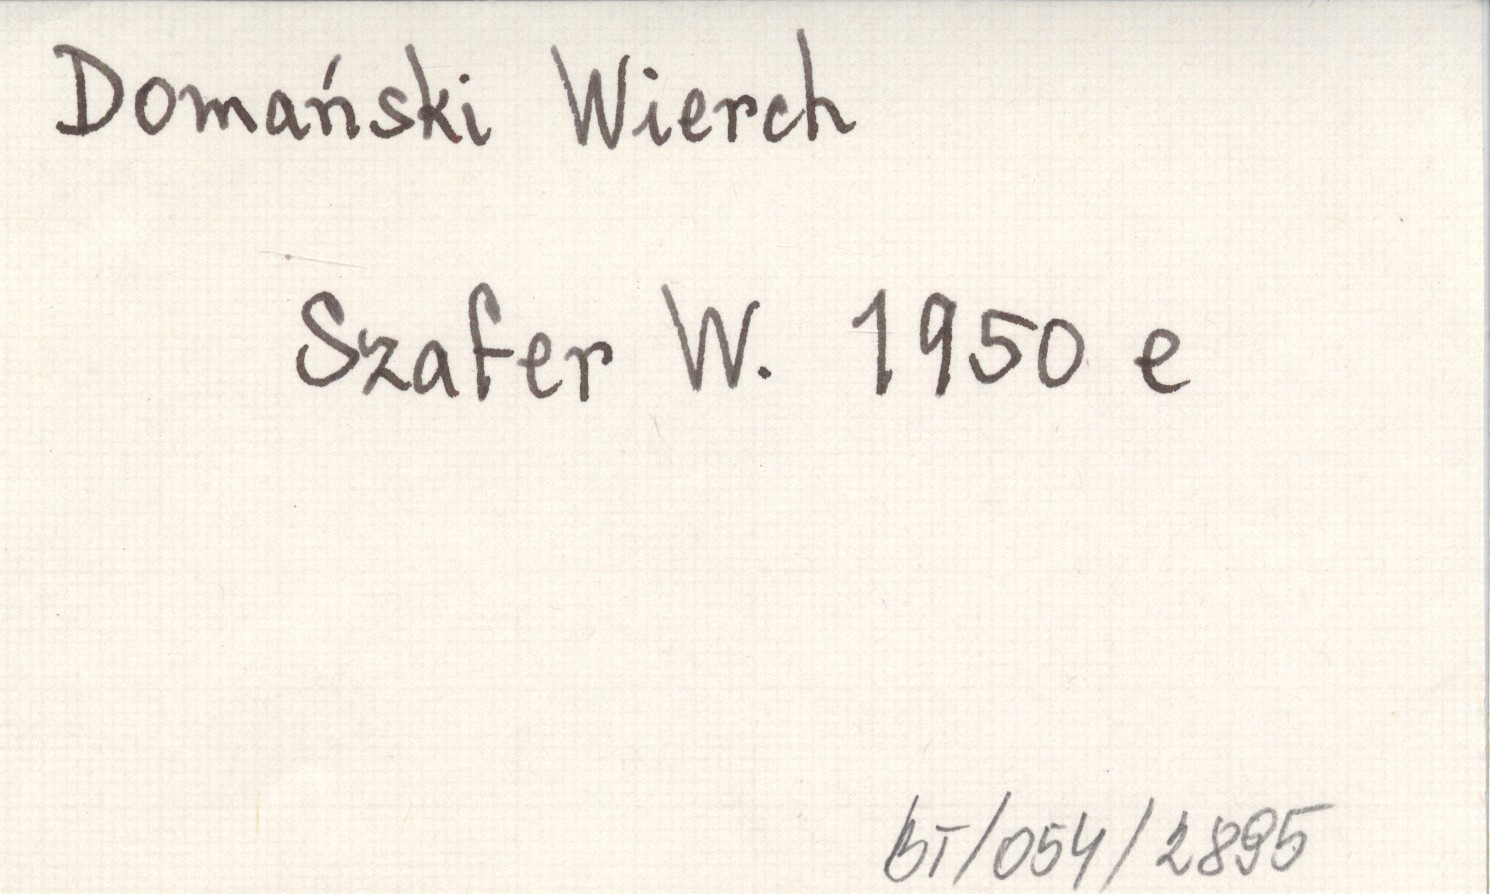 Domański Wierch
Szafer W. 1950 e
BT/054/2895